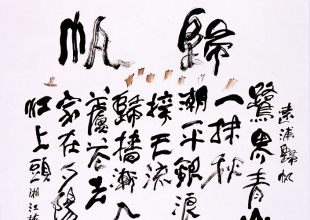 歸帆
遠浦歸帆
鷺界青山
一抹秋
潮平銀浪
接天流
歸檣漸入
蘆花去
家在夕陽
江上頭 湘江